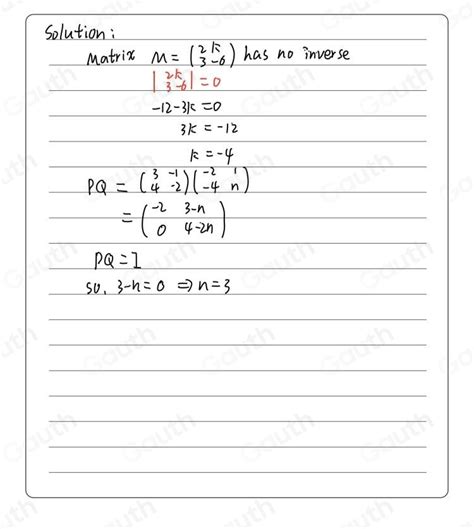 Solution:
Matrix M = (2 k
3 -6) has no inverse
|2 k
3 -6| = 0
-12-3k = 0
3k = -12
k = -4
PQ = (3 -1
4 -2)(-2 1
-4 n)
= (-2 3-n
0 4-2n)
PQ = I
so, 3-n = 0 ⇒ n = 3